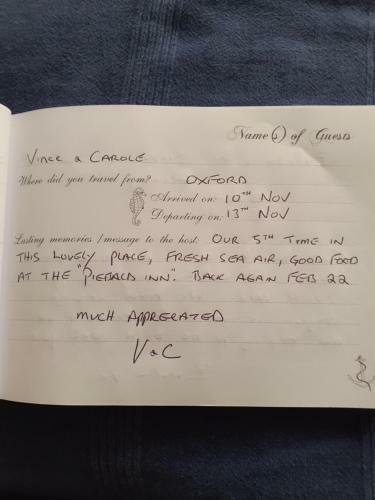 Name(s) of Guests
Vince & Carole
Where did you travel from? OXFORD
Arrived on: 10TH Nov
Departing on: 13TH Nov
Lasting memories / message to the host: OUR 5TH TIME IN
THIS LOVELY PLACE, FRESH SEA AIR, GOOD FOOD
AT THE "PIEBALD INN". BACK AGAIN FEB 22
MUCH APPRECATED
V & C